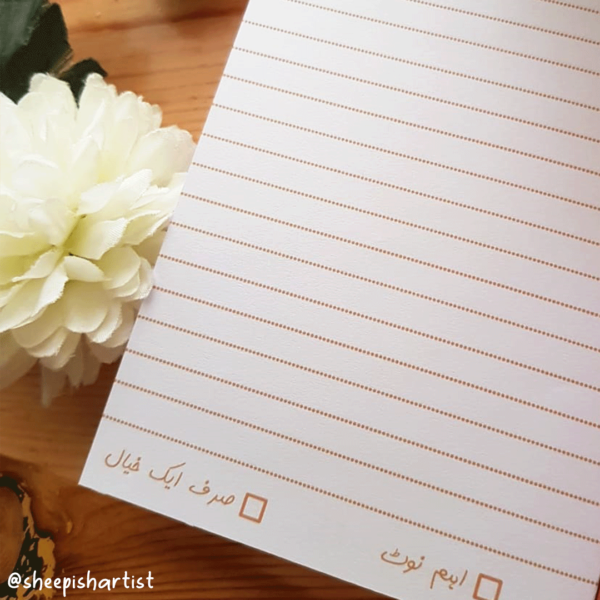 اہم نوٹ
صرف ایک خیال
@sheepishartist